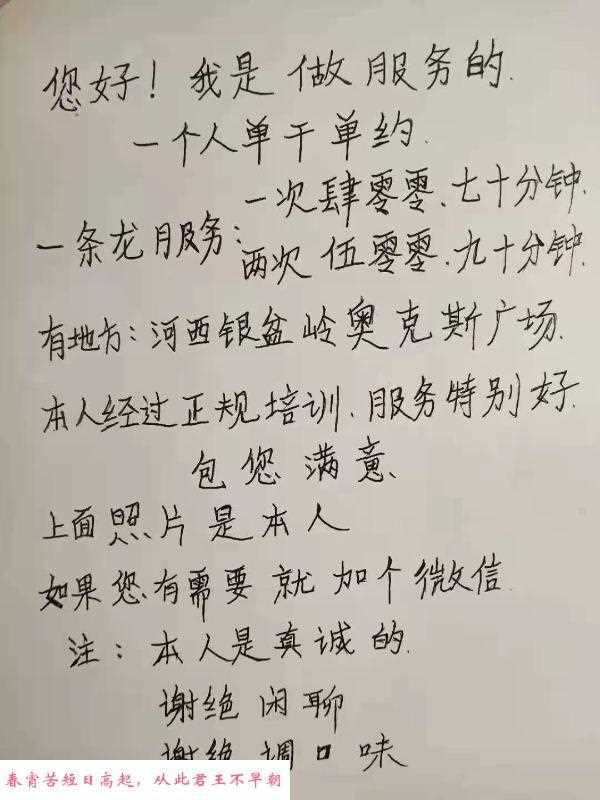 您好！我是做服务的.
一个人单干单约.
一条龙服务：一次肆零零.七十分钟.
两次伍零零.九十分钟.
有地方：河西银盆岭奥克斯广场.
本人经过正规培训.服务特别好.
包您满意、
上面照片是本人
如果您有需要就加个微信
注：本人是真诚的.
谢绝闲聊
谢绝调口味
春宵苦短日高起，从此君王不早朝